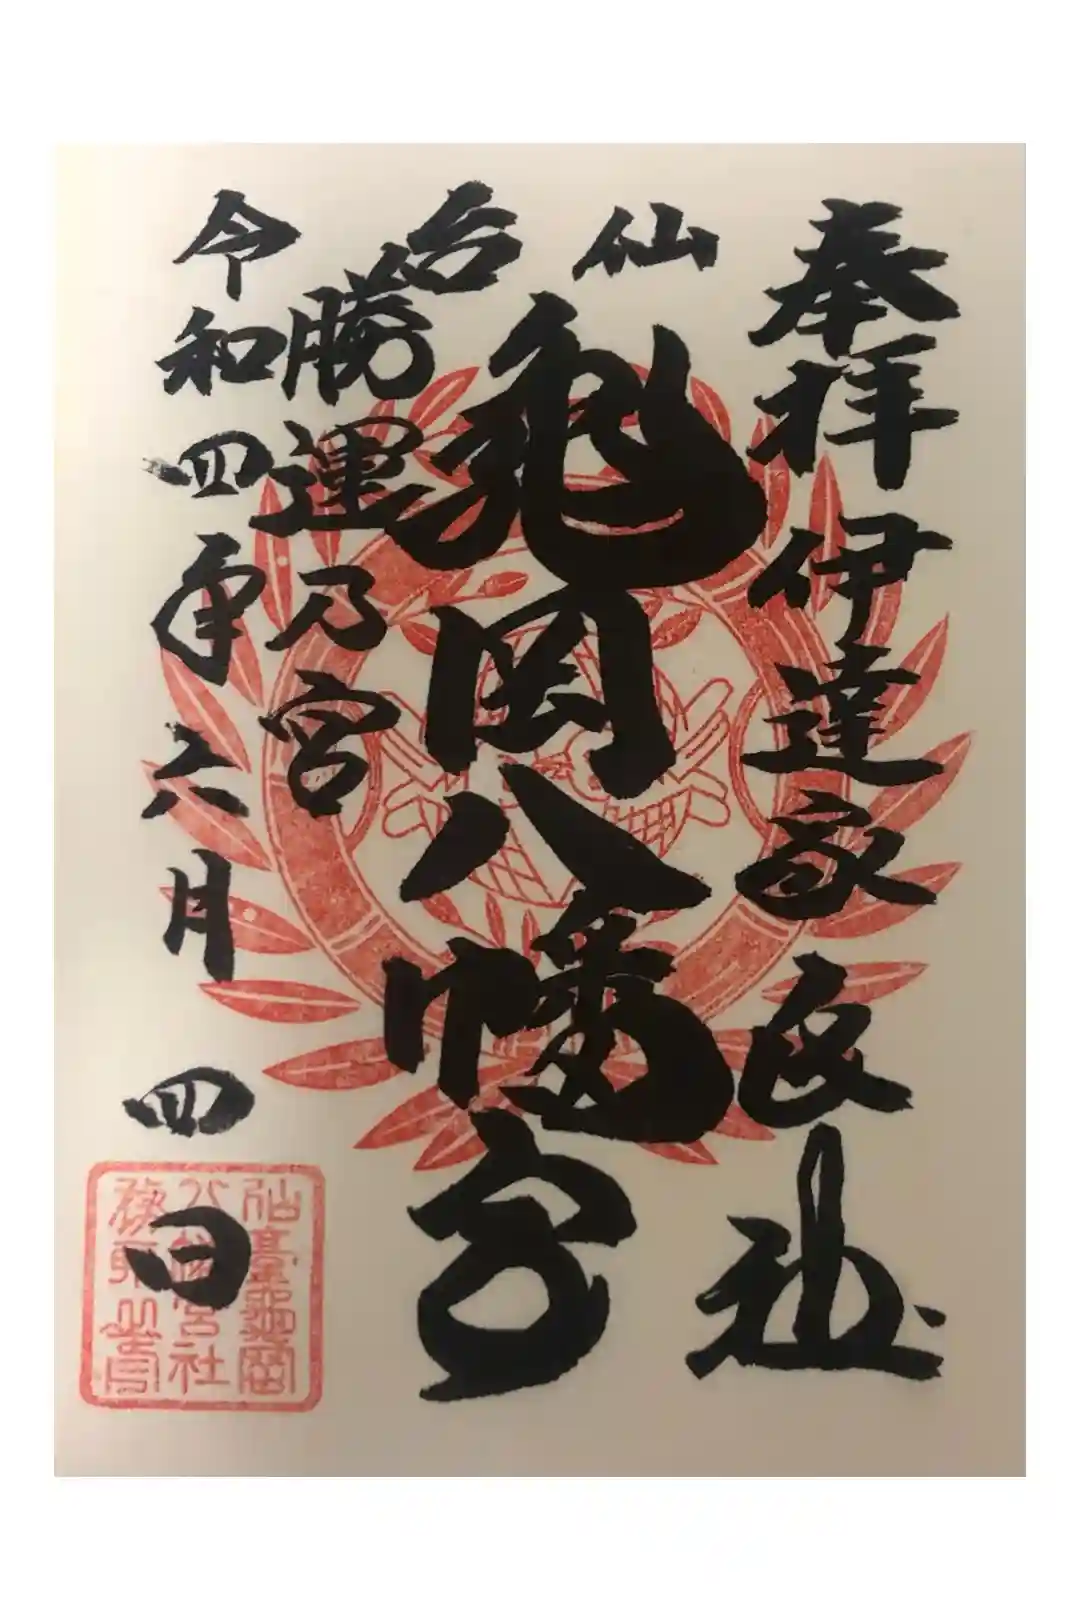 奉拝 伊達家
仙台
亀岡八幡宮
勝運乃宮
令和四年六月四日
仙臺龜岡
八幡宮社
務所之印